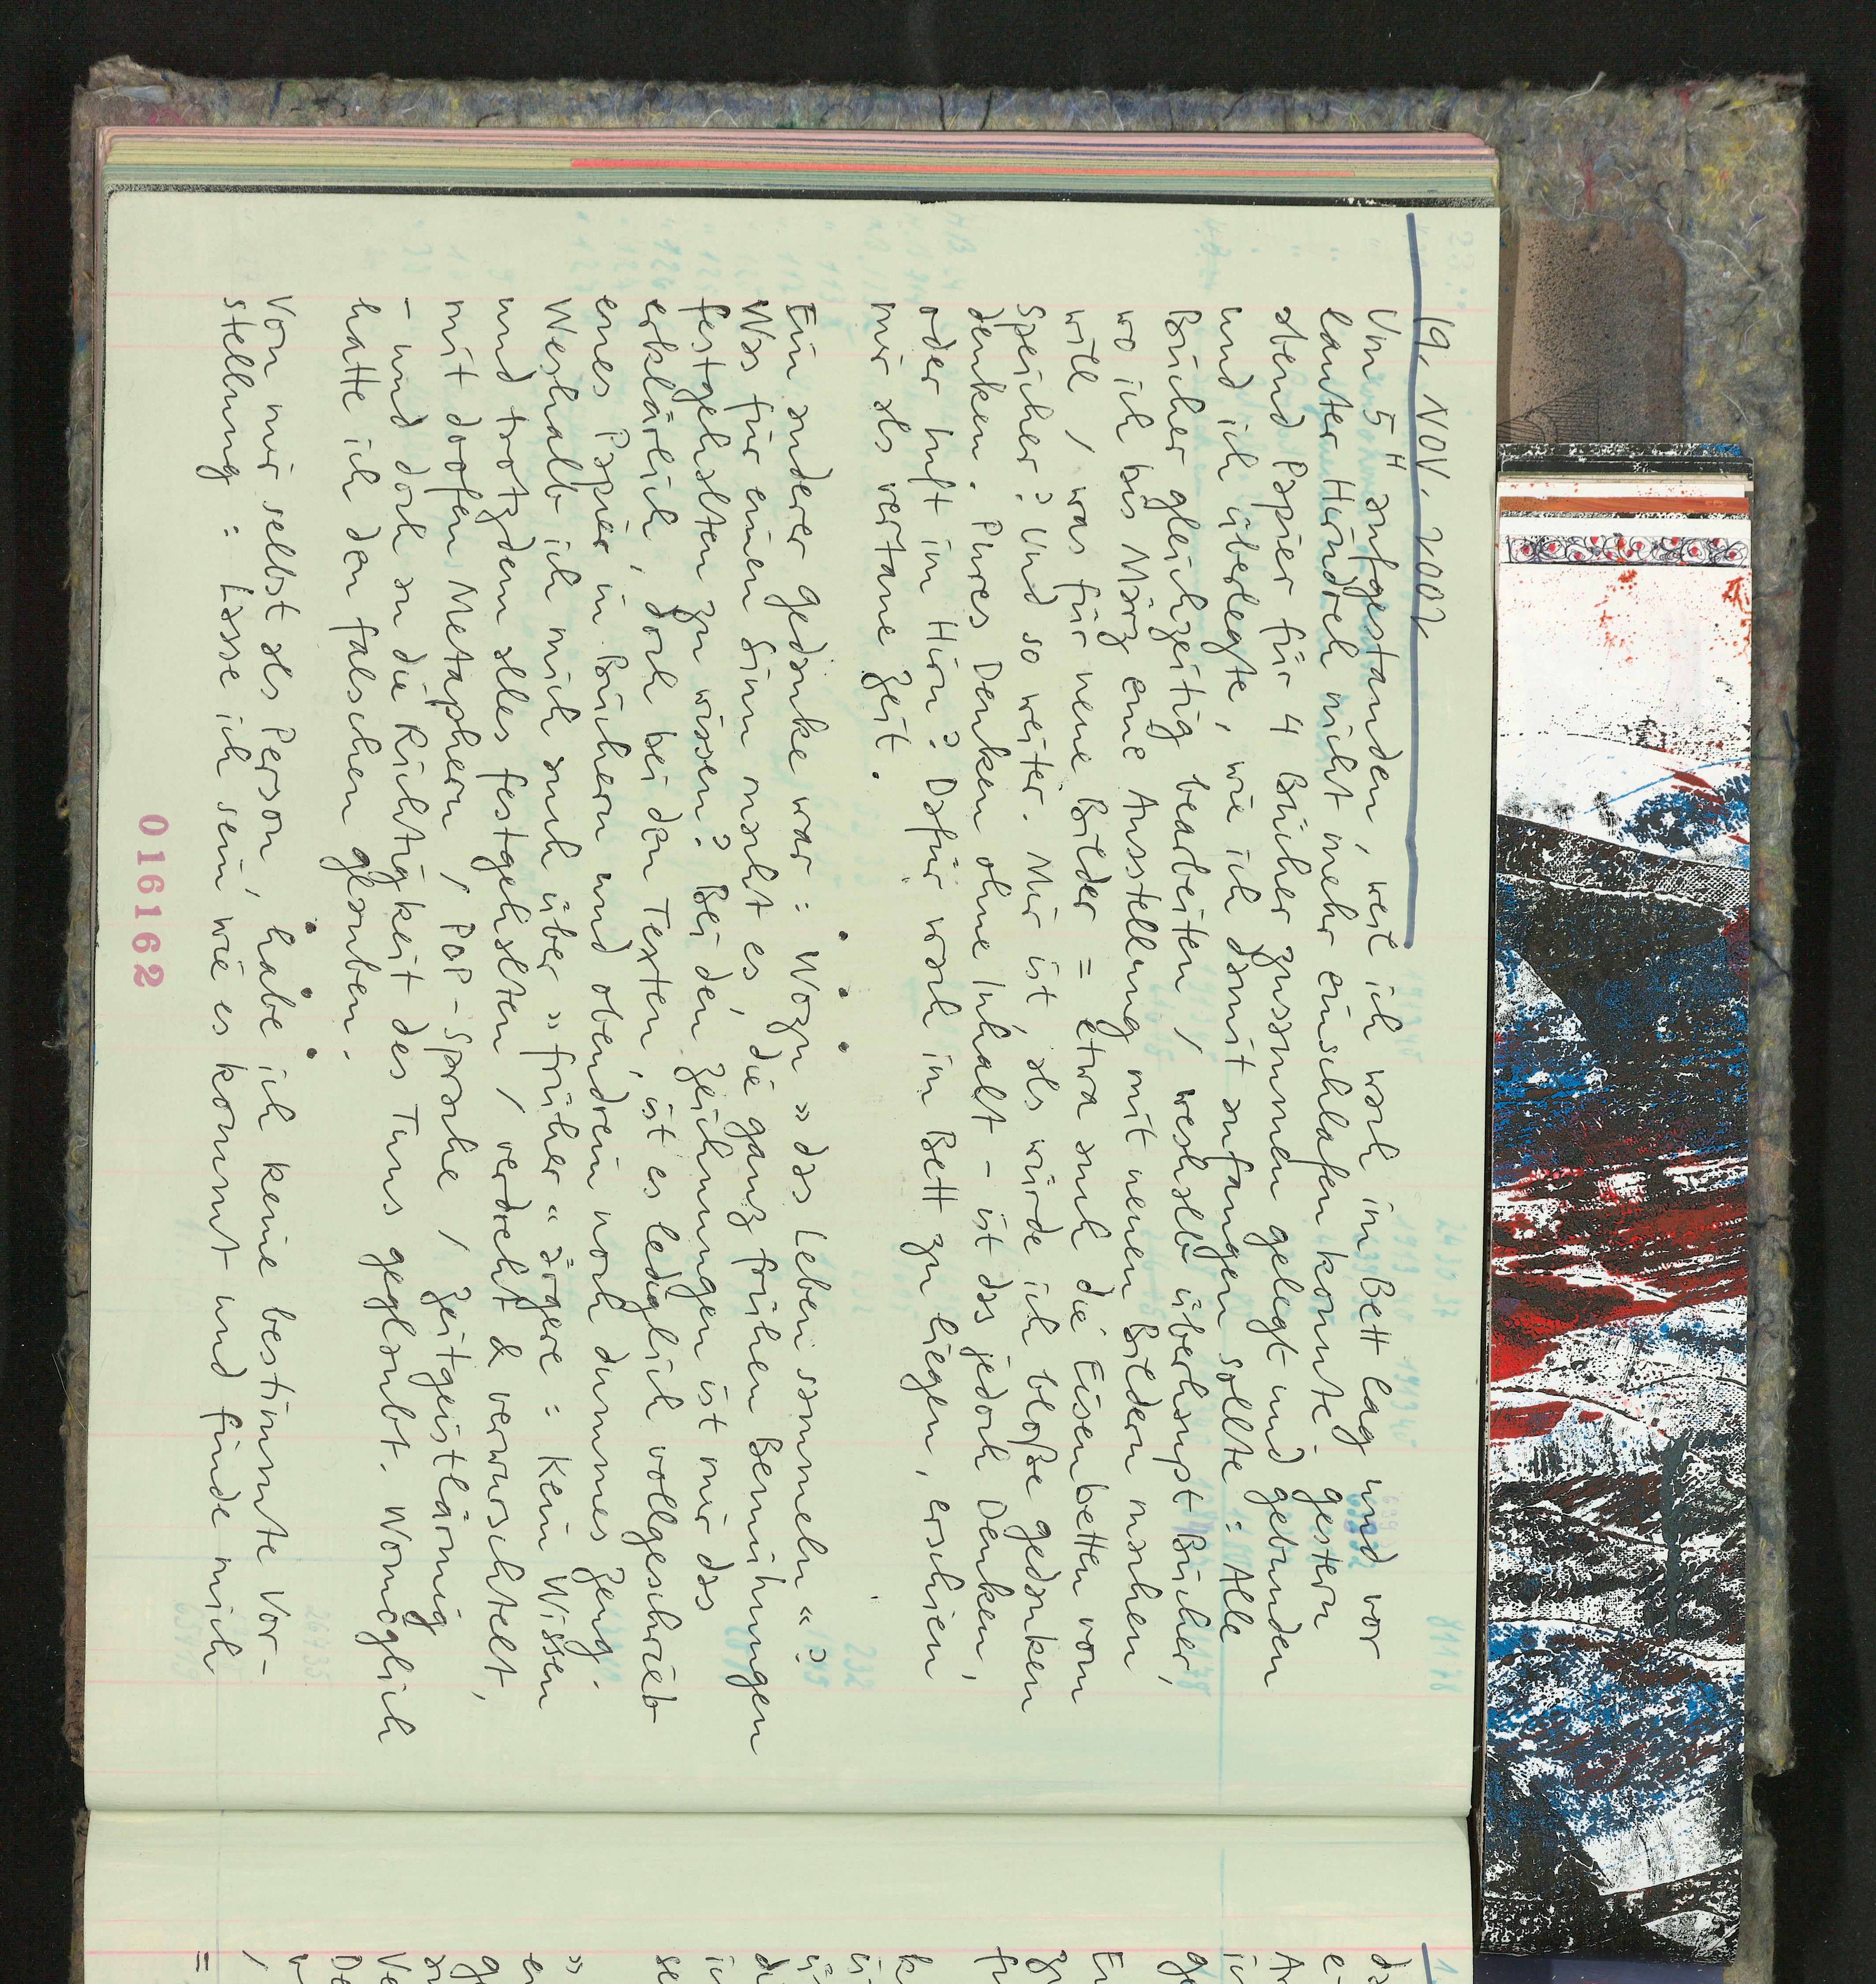 19. NOV. 2002
Um 5ʰ aufgestanden, weil ich wach im Bett lag und vor
lauter Hirndreh nicht mehr einschlafen konnte. Gestern
abend Papier für 4 Bücher zusammen gelegt und gebunden
und ich überlegte, wie ich damit anfangen sollte: Alle
Bücher gleichzeitig bearbeiten / weshalb überhaupt Bücher,
wo ich bis März eine Ausstellung mit neuen Bildern machen
will / was für neue Bilder = etwa auch die Eisenbetten vom
Speicher? Und so weiter. Mir ist, als würde ich bloße Gedanken
denken. Pures Denken ohne Inhalt - ist das jedoch Denken,
oder Luft im Hirn? Dafür wach im Bett zu liegen, erschien
mir als vertane Zeit.
• • •
Ein anderer Gedanke war: Wozu »das Leben sammeln«?
Was für einen Sinn macht es, die ganz frühen Bemühungen
festgehalten zu wissen? Bei den Zeichnungen ist mir das
erklärlich, doch bei den Texten, ist es lediglich vollgeschrieb
enes Papier in Büchern und obendrein noch dummes Zeug.
Weshalb ich mich auch über »früher« ärgere = Kein Wissen
und trotzdem alles festgehalten / verdreht & verwurschtelt,
mit doofen Metaphern / POP-Sprache / Zeitgeistlärmig
- und doch an die Richtigkeit des Tuns geglaubt. Womöglich
hatte ich den falschen Glauben.
• • •
Von mir selbst als Person, habe ich keine bestimmte Vor-
stellung: Lasse ich sein wie es kommt und finde mich
016162